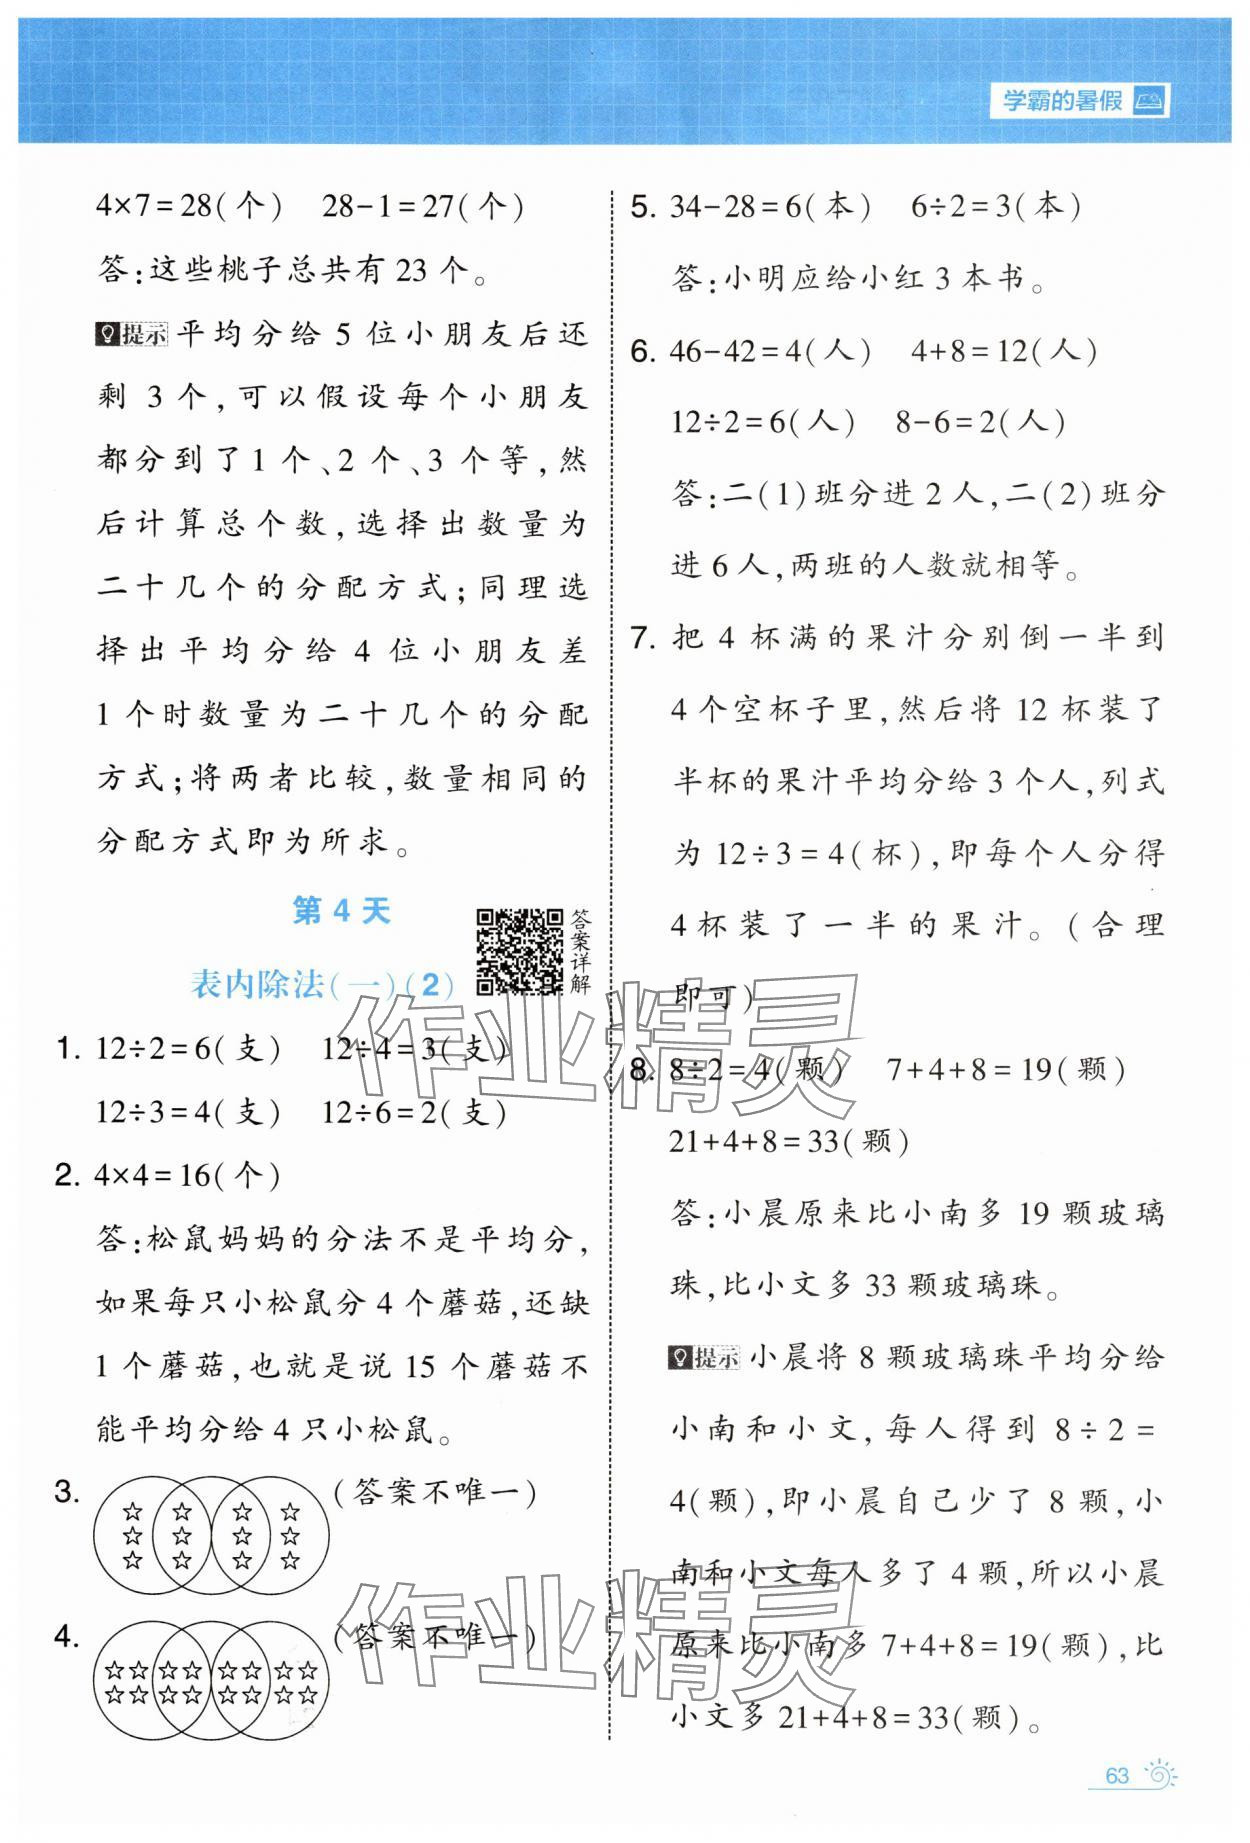 学霸的暑假
4×7=28(个) 28-1=27(个)
答:这些桃子总共有 23 个。
提示 平均分给 5 位小朋友后还
剩 3 个,可以假设每个小朋友
都分到了 1 个、2 个、3 个等,然
后计算总个数,选择出数量为
二十几个的分配方式;同理选
择出平均分给 4 位小朋友差
1 个时数量为二十几个的分配
方式;将两者比较,数量相同的
分配方式即为所求。
第 4 天
表内除法(一)(2)
答案详解
1. 12÷2=6(支) 12÷4=3(支)
12÷3=4(支) 12÷6=2(支)
2. 4×4=16(个)
答:松鼠妈妈的分法不是平均分,
如果每只小松鼠分 4 个蘑菇,还缺
1 个蘑菇,也就是说 15 个蘑菇不
能平均分给 4 只小松鼠。
3. (答案不唯一)
4. (答案不唯一)
5. 34-28=6(本) 6÷2=3(本)
答:小明应给小红 3 本书。
6. 46-42=4(人) 4+8=12(人)
12÷2=6(人) 8-6=2(人)
答:二(1)班分进 2 人,二(2)班分
进 6 人,两班的人数就相等。
7. 把 4 杯满的果汁分别倒一半到
4 个空杯子里,然后将 12 杯装了
半杯的果汁平均分给 3 个人,列式
为 12÷3=4(杯),即每个人分得
4 杯装了一半的果汁。(合理
即可)
8. 8÷2=4(颗) 7+4+8=19(颗)
21+4+8=33(颗)
答:小晨原来比小南多 19 颗玻璃
珠,比小文多 33 颗玻璃珠。
提示 小晨将 8 颗玻璃珠平均分给
小南和小文,每人得到 8÷2=
4(颗),即小晨自己少了 8 颗,小
南和小文每人多了 4 颗,所以小晨
原来比小南多 7+4+8=19(颗),比
小文多 21+4+8=33(颗)。
作业精灵
作业精灵
63